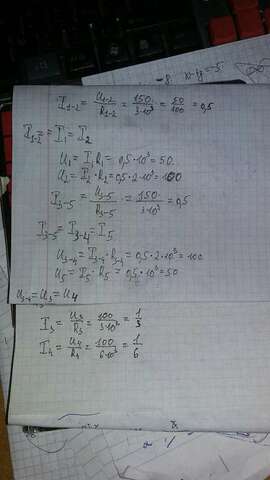 I₁₋₂ = U₁₋₂/R₁₋₂ = 150/3·10³ = 50/100 = 0,5
I₁₋₂ = I₁ = I₂
U₁ = I₁R₁ = 0,5·10³ = 50.
U₂ = I₂·R₂ = 0,5·2·10³ = 100
I₃₋₅ = U₃₋₅/R₃₋₅ = 150/3·10³ = 0,5
I₃₋₅ = I₃₋₄ = I₅
U₃₋₄ = I₃₋₄·R₃₋₄ = 0,5·2·10³ = 100
U₅ = I₅·R₅ = 0,5·10³ = 50
U₃₋₄ = U₃ = U₄
I₃ = U₃/R₃ = 100/3·10³ = 1/3
I₄ = U₄/R₄ = 100/6·10³ = 1/6